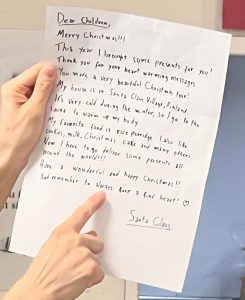 Dear Children,
Merry Christmas!!!
This year I brought some presents for you!
Thank you for your heart warming messages
You made a very beautiful Christmas tree!
My house is in Santa Claus Village, Finland
It's very cold during the winter, so I go to the
sauna to warm up my body.
My favorite food is rice porridge. I also like
cookies, milk, Christmas cake and many others
Now I have to go deliver some presents all
around the world!!!
Have a wonderful and happy Christmas!!
And remember to always keep a kind heart! ♡
Santa Claus